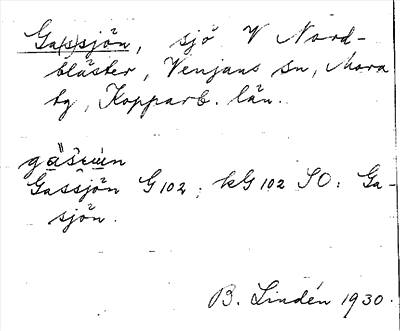 Ga(s)sjön, sjö V Nord-
bläster, Venjans sn, Mora
tg, Kopparb. län.
Gassjön G102; kG102 SO: Ga-
sjön.
B. Lindén 1930.